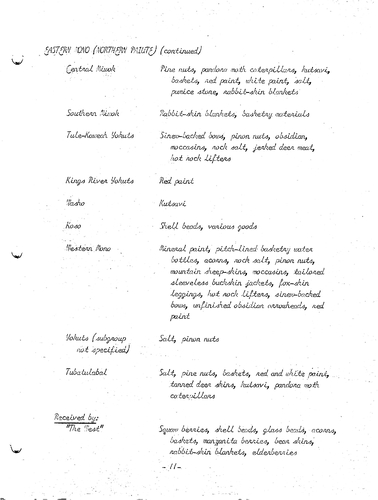 EASTERN MONO (NORTHERN PAIUTE) (continued)
Central Miwok Pine nuts, pandora moth caterpillars, kutsavi,
baskets, red paint, white paint, salt,
pumice stone, rabbit-skin blankets
Southern Miwok Rabbit-skin blankets, basketry materials
Tule-Kaweah Yokuts Sinew-backed bows, pinon nuts, obsidian,
moccasins, rock salt, jerked deer meat,
hot rock lifters
Kings River Yokuts Red paint
Washo Kutsavi
Koso Shell beads, various goods
Western Mono Mineral paint, pitch-lined basketry water
bottles, acorns, rock salt, pinon nuts,
mountain sheep-skins, moccasins, tailored
sleeveless buckskin jackets, fox-skin
leggings, hot rock lifters, sinew-backed
bows, unfinished obsidian arrowheads, red
paint
Yokuts (subgroup Salt, pinon nuts
not specified)
Tubatulabal Salt, pine nuts, baskets, red and white paint,
tanned deer skins, kutsavi, pandora moth
caterpillars
Received by:
"The West" Squaw berries, shell beads, glass beads, acorns,
baskets, manzanita berries, bear skins,
rabbit-skin blankets, elderberries
-11-